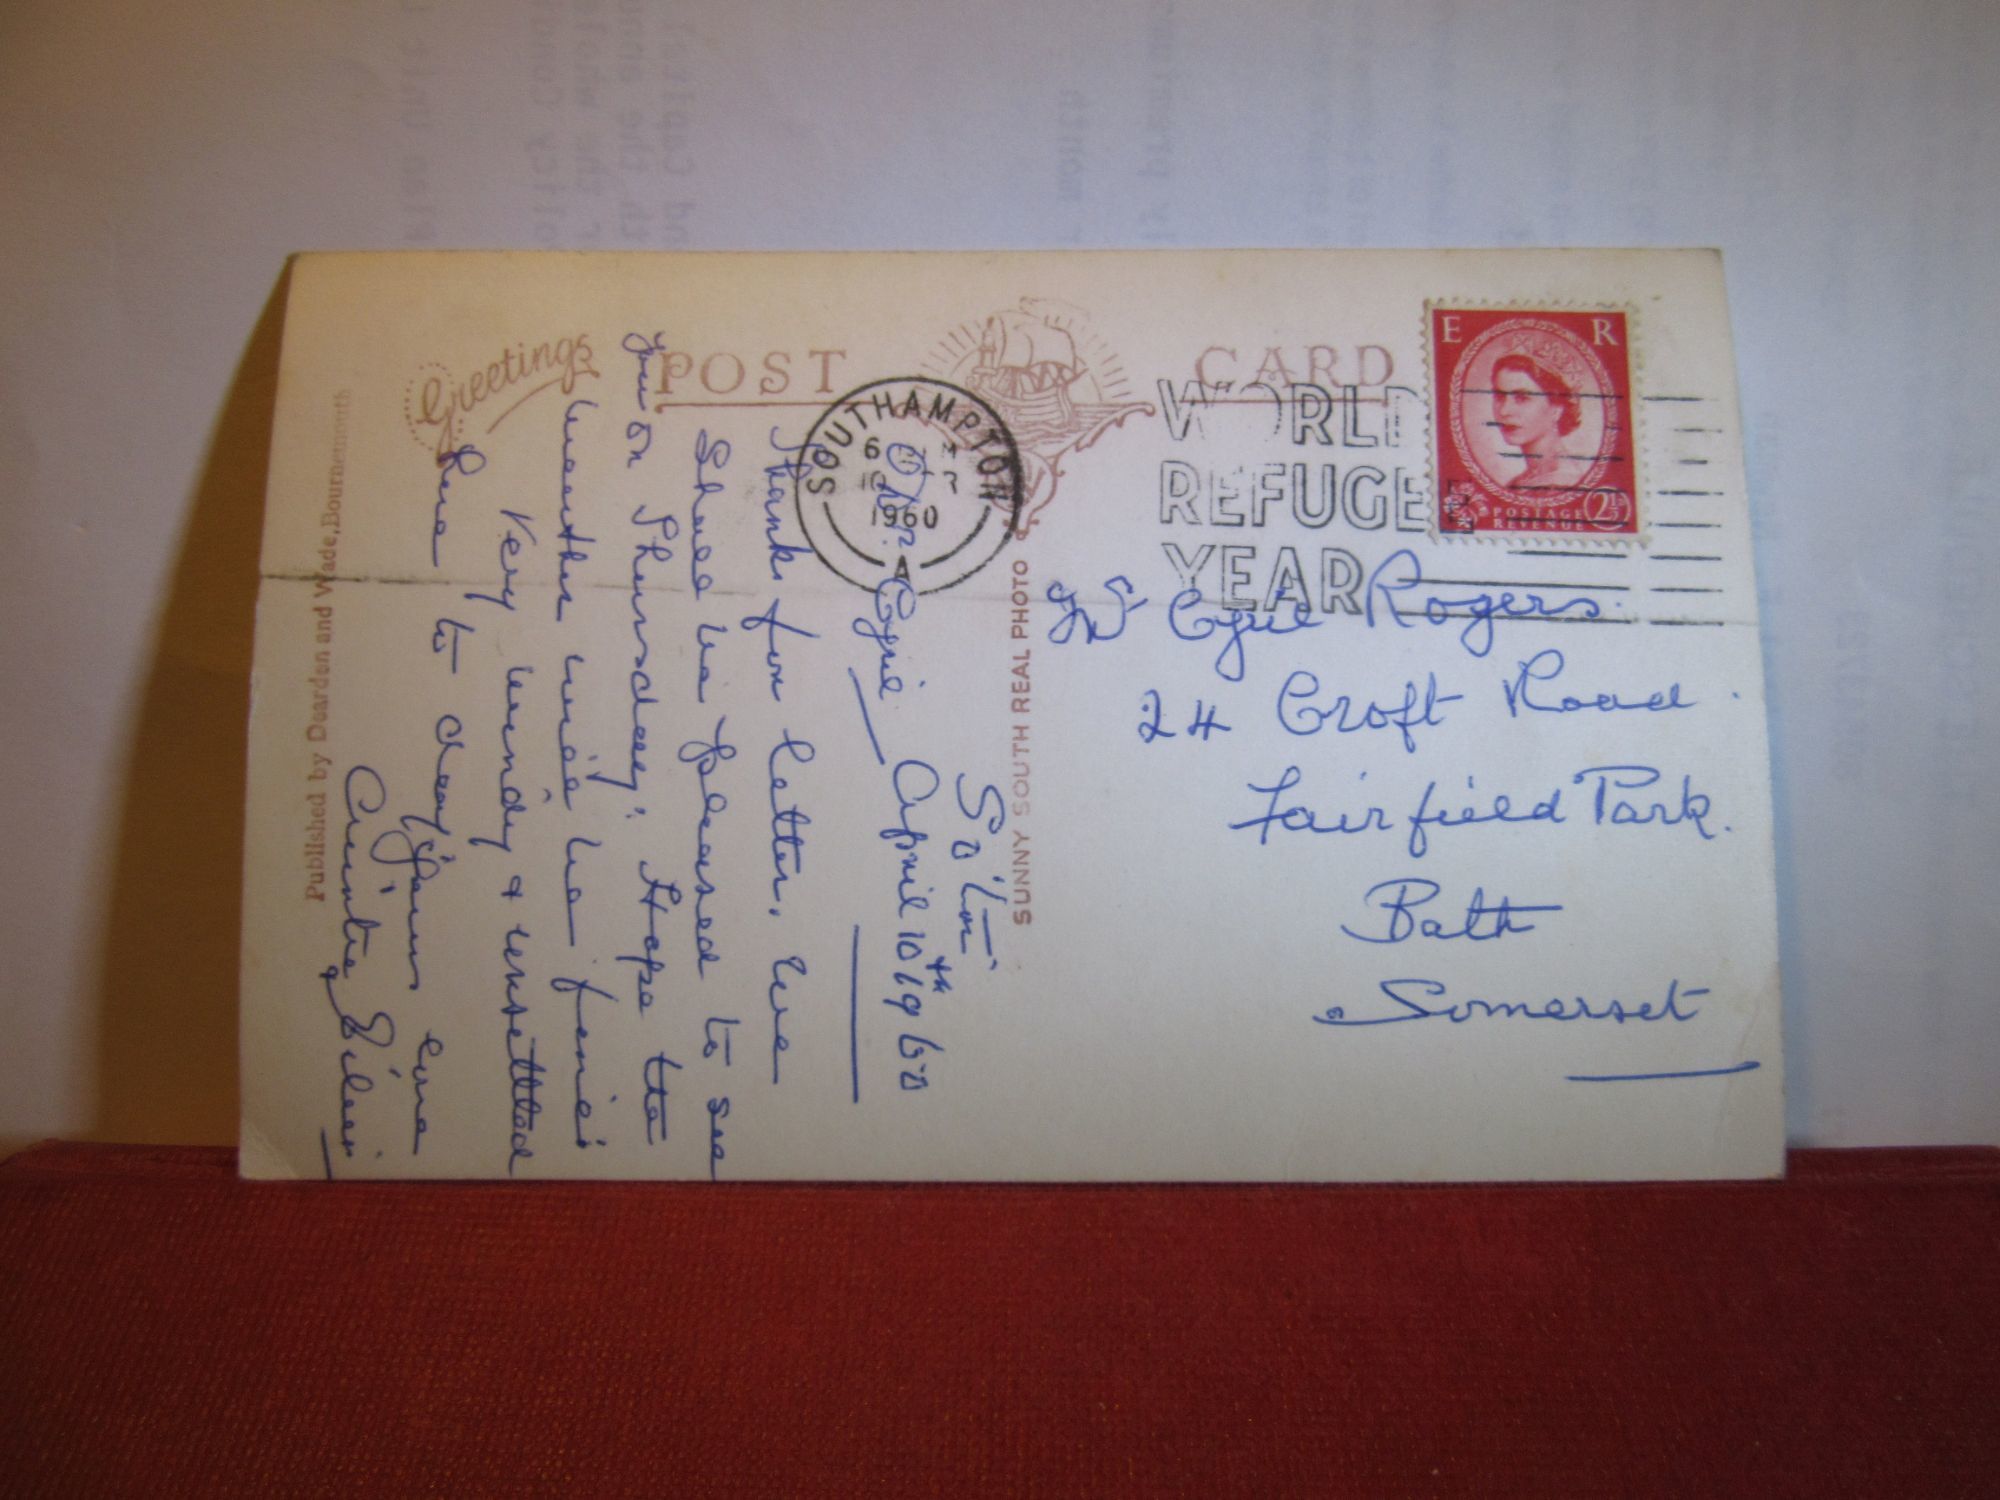 Greetings
POST CARD
SOUTHAMPTON
1960
A
WORLD
REFUGEE
YEAR
E R
POSTAGE
REVENUE
2½
So'ton
April 10th 1960
Dr. Cyril
Thanks for letter, we
shall be pleased to see
you on Thursday. Hope the
weather will be fine.
Very windy & unsettled
here to day. Yours ever
Auntie Eileen
Published by Dearden and Wade, Bournemouth
SUNNY SOUTH REAL PHOTO
Mr Cyril Rogers.
24 Croft Road
Fairfield Park.
Bath
Somerset